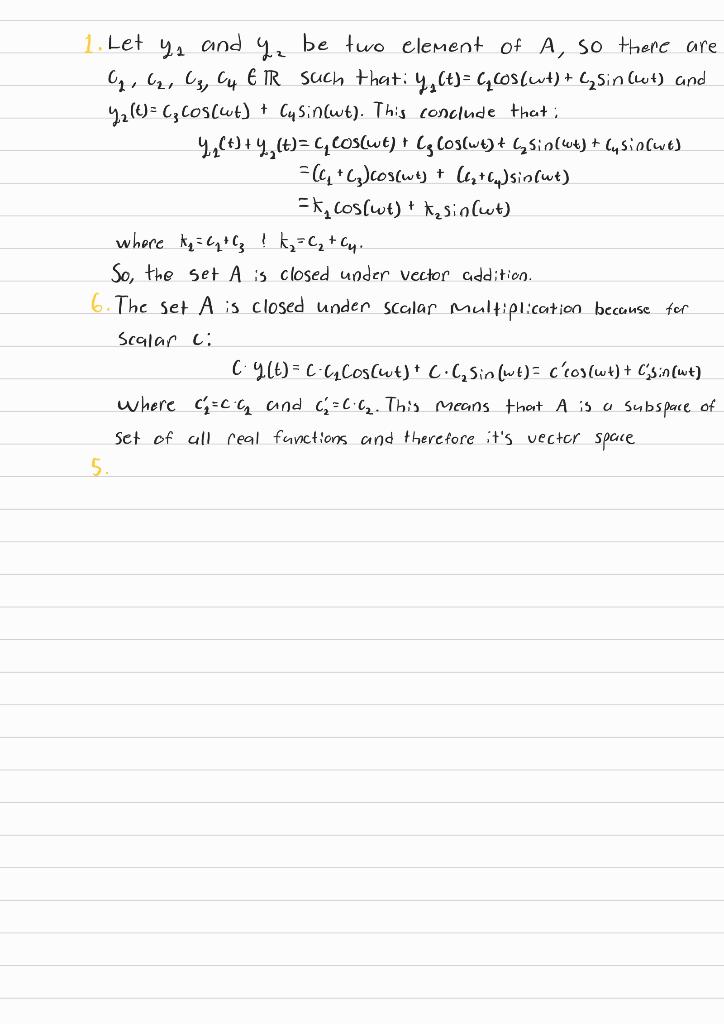 1. Let y₁ and y₂ be two element of A, so there are
C₁, C₂, C₃, C₄ ∈ ℝ such that: y₁(t) = C₁cos(ωt) + C₂sin(ωt) and
y₂(t) = C₃cos(ωt) + C₄sin(ωt). This conclude that:
y₁(t) + y₂(t) = C₁cos(ωt) + C₃cos(ωt) + C₂sin(ωt) + C₄sin(ωt)
= (C₁ + C₃)cos(ωt) + (C₂ + C₄)sin(ωt)
= k₁cos(ωt) + k₂sin(ωt)
where k₁ = C₁ + C₃ ! k₂ = C₂ + C₄.
So, the set A is closed under vector addition.
6. The set A is closed under scalar multiplication because for
scalar C:
C · y(t) = C · C₁cos(ωt) + C · C₂sin(ωt) = C'cos(ωt) + C₂'sin(ωt)
where C₁' = C · C₁ and C₂' = C · C₂. This means that A is a subspace of
set of all real functions and therefore it's vector space
5.